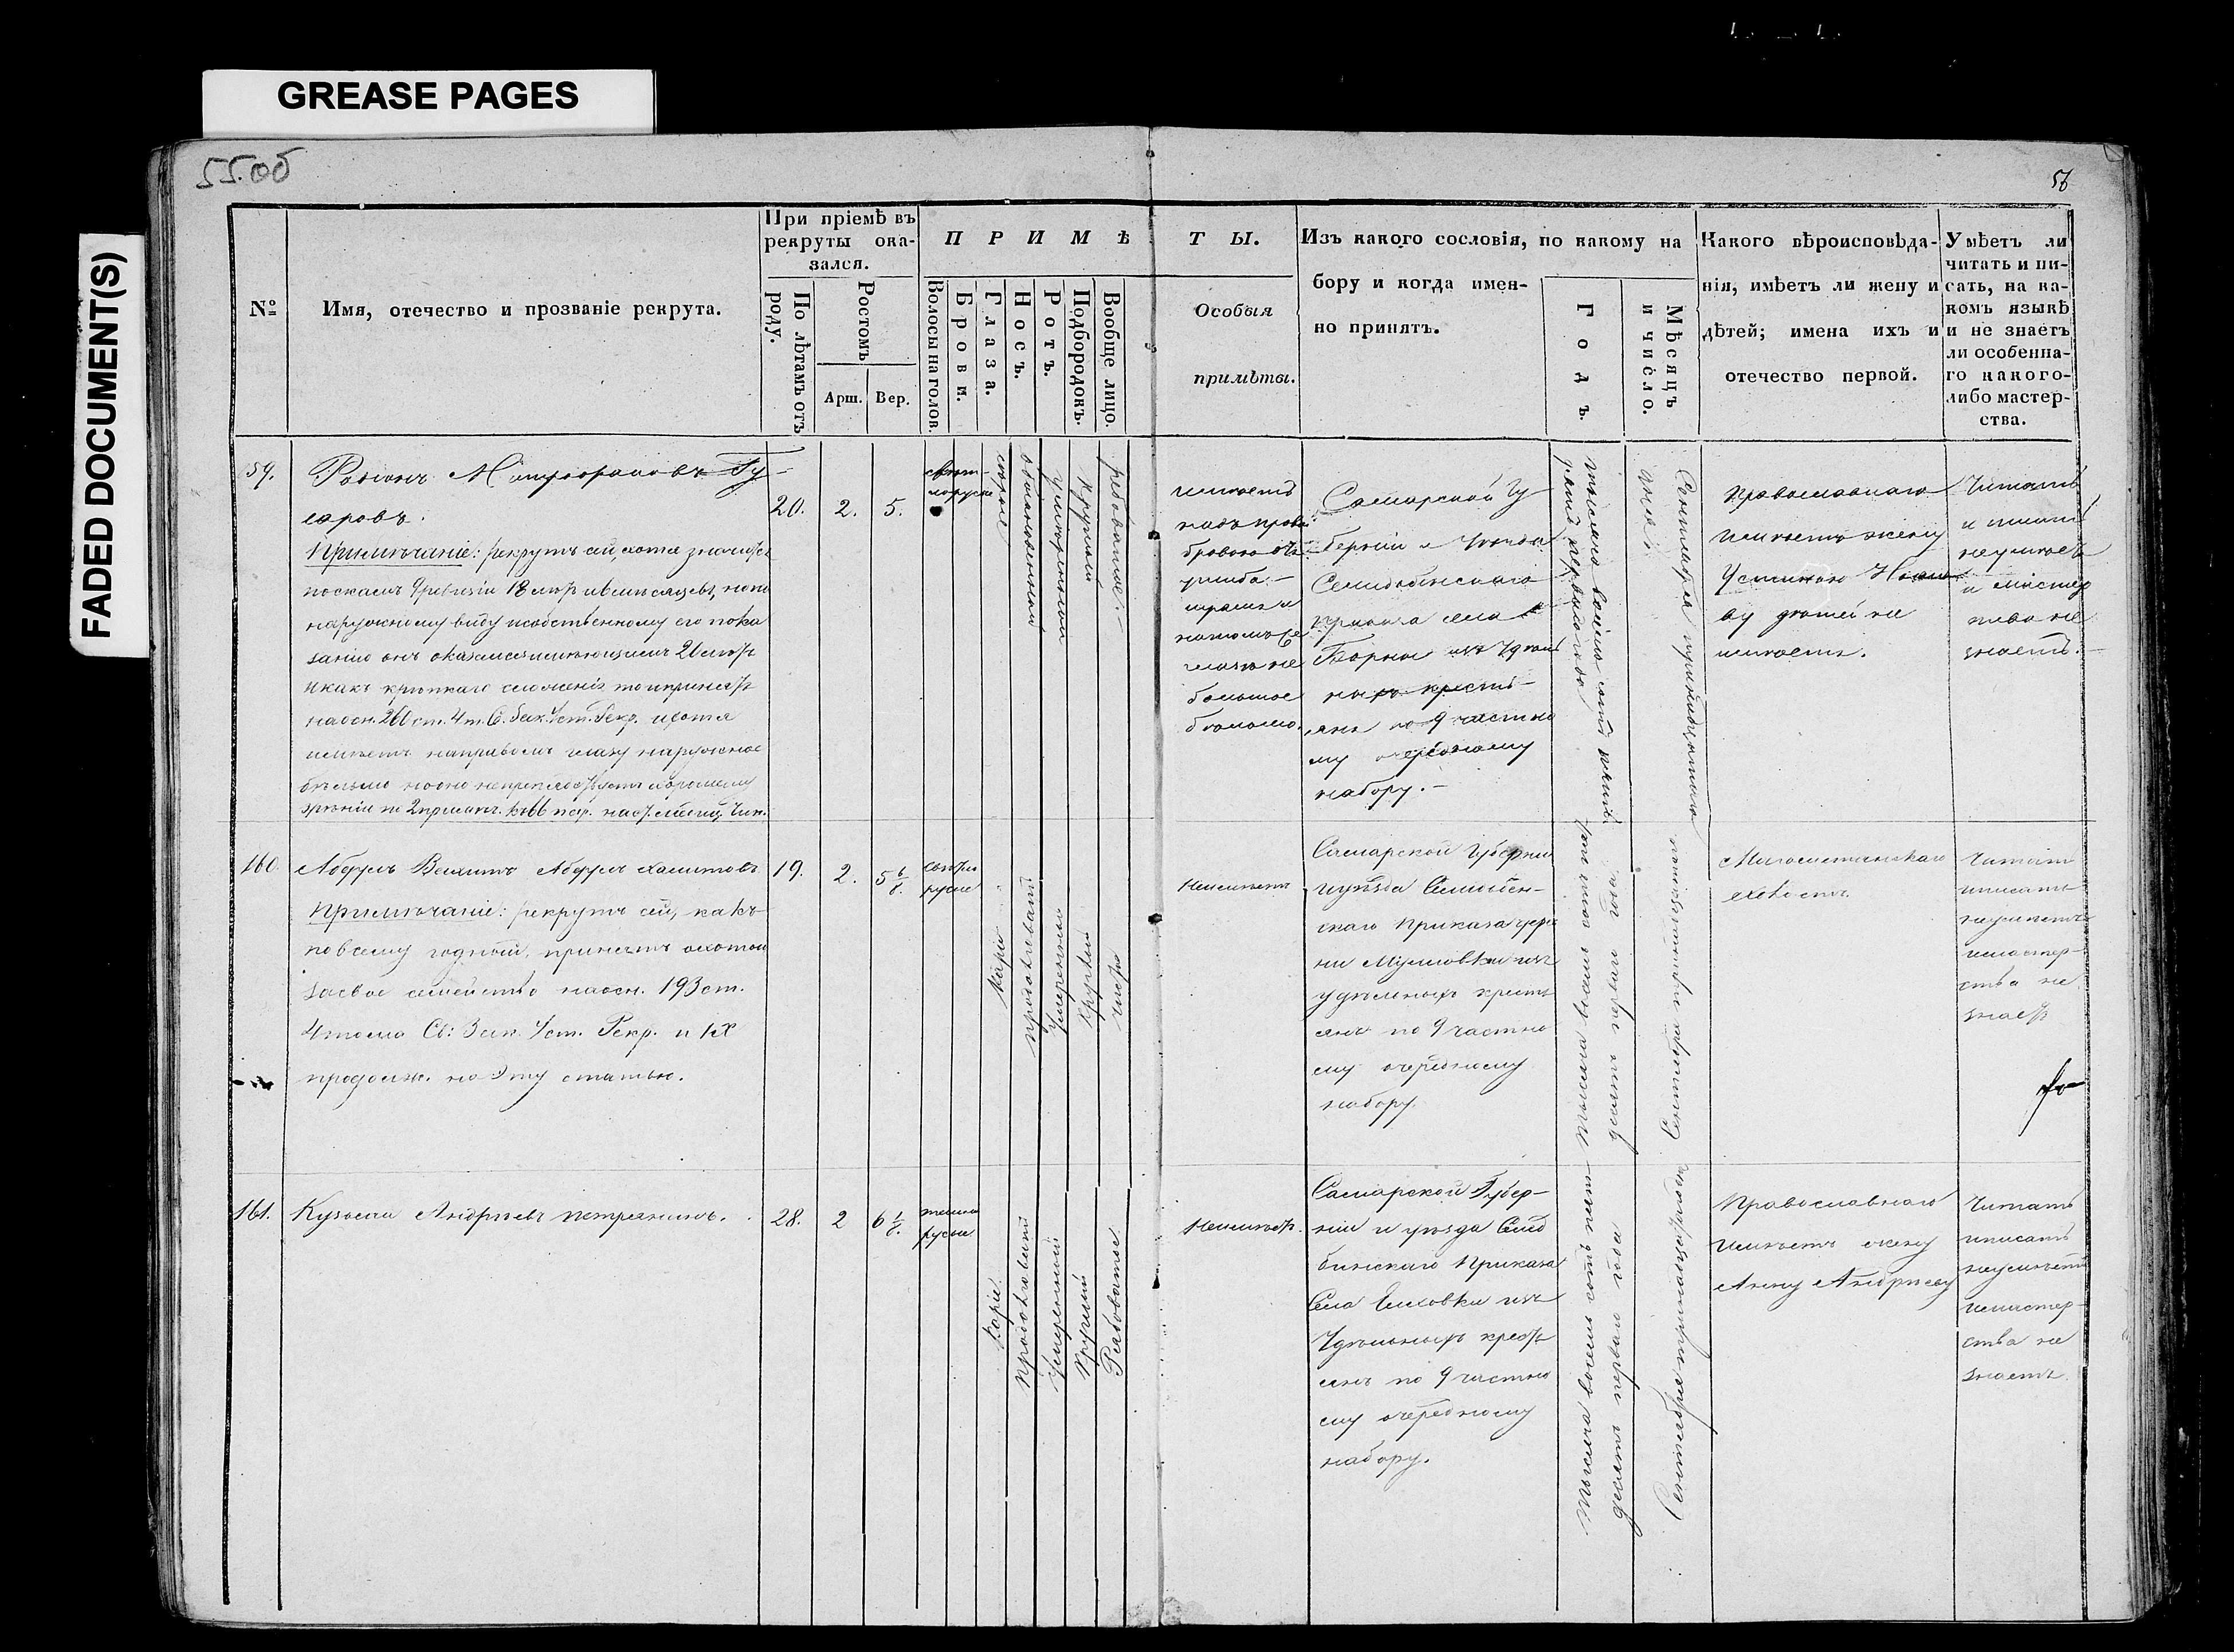 GREASE PAGES
FADED DOCUMENT(S)
55.об
56
№
Имя, отечество и прозваніе рекрута.
При пріемѣ въ
рекруты ока-
зался.
По лѣтамъ отъ
роду.
Ростомъ
Арш.
Вер.
ПРИМѢТЫ.
Волосы на голов.
Брови.
Глаза.
Носъ.
Ротъ.
Подбородокъ.
Вообще лицо.
Особыя
примѣты.
Изъ какого сословія, по какому на
бору и когда имен-
но принятъ.
Годъ.
Мѣсяцъ
и число.
Какого вѣроисповѣда-
нія, имѣетъ ли жену и
дѣтей; имена ихъ и
отечество первой.
Умѣетъ ли
читать и пи-
сать, на ка-
комъ языкѣ
и не знаетъ
ли особенна-
го какого-
либо мастер-
ства.
59.
Митрофановъ Гу-
саровъ.
Примѣчаніе: рекрутъ сей, хотя
наружному виду и собственному его пока
занію онъ оказался имѣющимъ 20 лѣтъ
и какъ крѣпкаго сложенія то и принятъ
на осн. 260 ст. 4 т. С. Зак. Уст. Рекр. и хотя
имѣетъ на правомъ глазу наружное
бѣльмо но оно
20.
2.
5.
свѣт-
лорусые
сѣрые
обыкновенный
умѣренный
круглый
рябоватое.
имѣетъ
надъ
бровью
на томъ же
глазѣ не
большое
бѣльмо.
Самарской Гу-
берніи и Уѣзда
приказа села
Борки изъ Удѣль
ныхъ кресть-
янъ по 9 частно
му очередному
набору.-
тысяча восемьсотъ
первого года
Сентября
дня
Православнаго
имѣетъ жену
Устинью
ву дѣтей не
имѣетъ.
Читать
и писать
не умѣетъ
и мастер
ства не
знаетъ.
160.
Абдулъ Вахитъ Абдулъ Халитовъ
Примѣчаніе: рекрутъ сей, какъ
по всему годный, принятъ охотой
за свое семейство на осн. 193 ст.
4 тома Св: Зак. Уст. Рекр. и
продолж. на эту статью.
19.
2.
5 6/8.
свѣтло
русые
Карія
продолговатый
Умѣренный
Круглый
чистое
Неимѣетъ
Самарской Губерни
и уѣзда
скаго Приказа дере
вни Муловки изъ
удѣльныхъ кресть
янъ по 9 частно
му очередному
набору.
Тысяча восемь сотъ
десятъ перваго года
Сентября
Магометанскаго
холостъ.
Читать
и писать
не умѣетъ
и мастер-
ства не
знаетъ
161.
Кузьма Андрѣевъ Петряшинъ.
28.
2
6 1/8.
темно
русые
Карія
Продолговатый
Умѣренный
Круглый
Рябоватое
Неимѣетъ.
Самарской Губер-
ніи и уѣзда
бинскаго Приказа
Села Елховки изъ
Удѣльныхъ крест
янъ по 9 частно
му очередному
набору.
Тысяча восемь сотъ
десятъ перваго года
Сентября
Православнаго
Имѣетъ жену
Анну Андрѣеву
Читать
и писать
не умѣетъ
и мастер-
ства не
знаетъ.